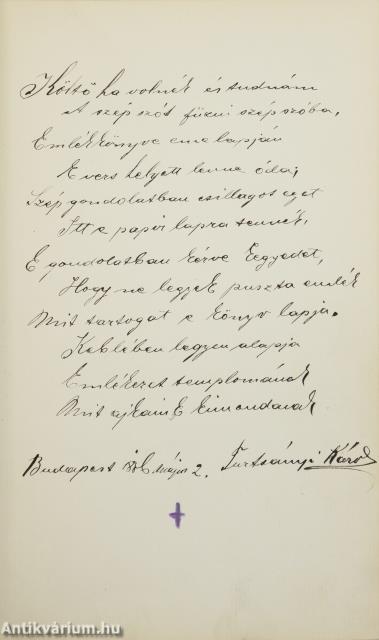 Költő ha volnék és tudnám
A szép szót fűzni szép szóba,
Emlékkönyve eme lapján
E vers helyett lenne óda;
Szép gondolatban csillagos eget
Itt e papír lapra tennék,
E gondolatban kérve Kegyedet,
Hogy ne legyek puszta emlék
Mit tartogat e könyv lapja.
Keblében legyen alapja
Emlékezet templomának
Mit ajkaink kimondanak
Budapest május 2. Turtsányi Károl
Antikvárium.hu